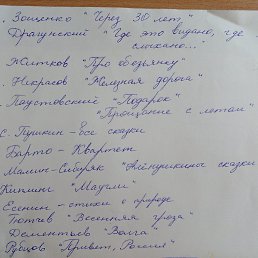 . Зощенко "Через 30 лет"
. Драгунский "Где это видано, где
слыхано..."
. Житков "Про обезьянку"
. Некрасов "Железная дорога"
. Паустовский "Подарок"
"Прощание с летом"
С. Пушкин - все сказки
Барто - Квартет
Мамин-Сибиряк "Алёнушкины сказки
Киплинг "Маугли"
Есенин - стихи о природе
Тютчев "Весенняя гроза"
Дементьев "Волга"
Рубцов "Привет, Россия"